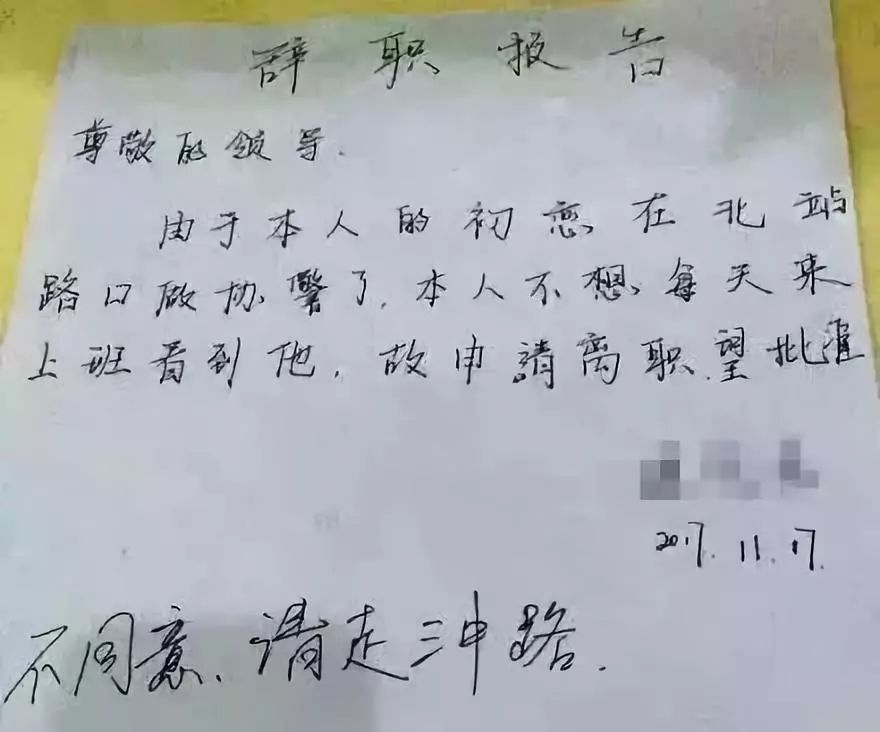 辞职报告
尊敬的领导.
由于本人的初恋在北站
路口做协警了,本人不想每天来
上班看到他,故申請离职望批准
2017.11.17.
不同意、请走三中路.